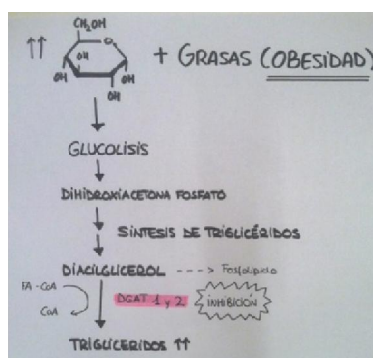 CH₂OH
↑↑ OH OH OH OH + GRASAS (OBESIDAD)
GLUCOLISIS
DIHIDROXIACETONA FOSFATO
SÍNTESIS DE TRIGLICÉRIDOS
DIACILGLICEROL ---> Fosfolípido
FA-CoA
DGAT 1 y 2 INHIBICIÓN
CoA
TRIGLICERIDOS ↑↑